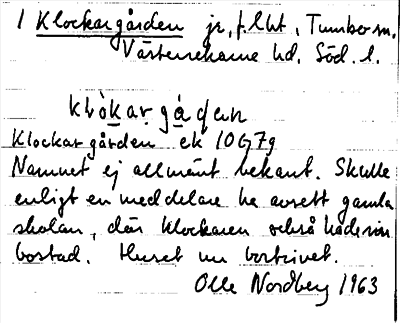 1 Klockargården jr, f. lht, Tumbo sn.
Västerrekarne hd. Söd. l.
klòkar gá ḍen
Klockargården ek 10G7g
Namnet ej allmänt bekant. Skulle
enligt en meddelare ha avsett gamla
skolan, där klockaren också hade sin
bostad. Huset nu bortrivet.
Olle Nordberg 1963